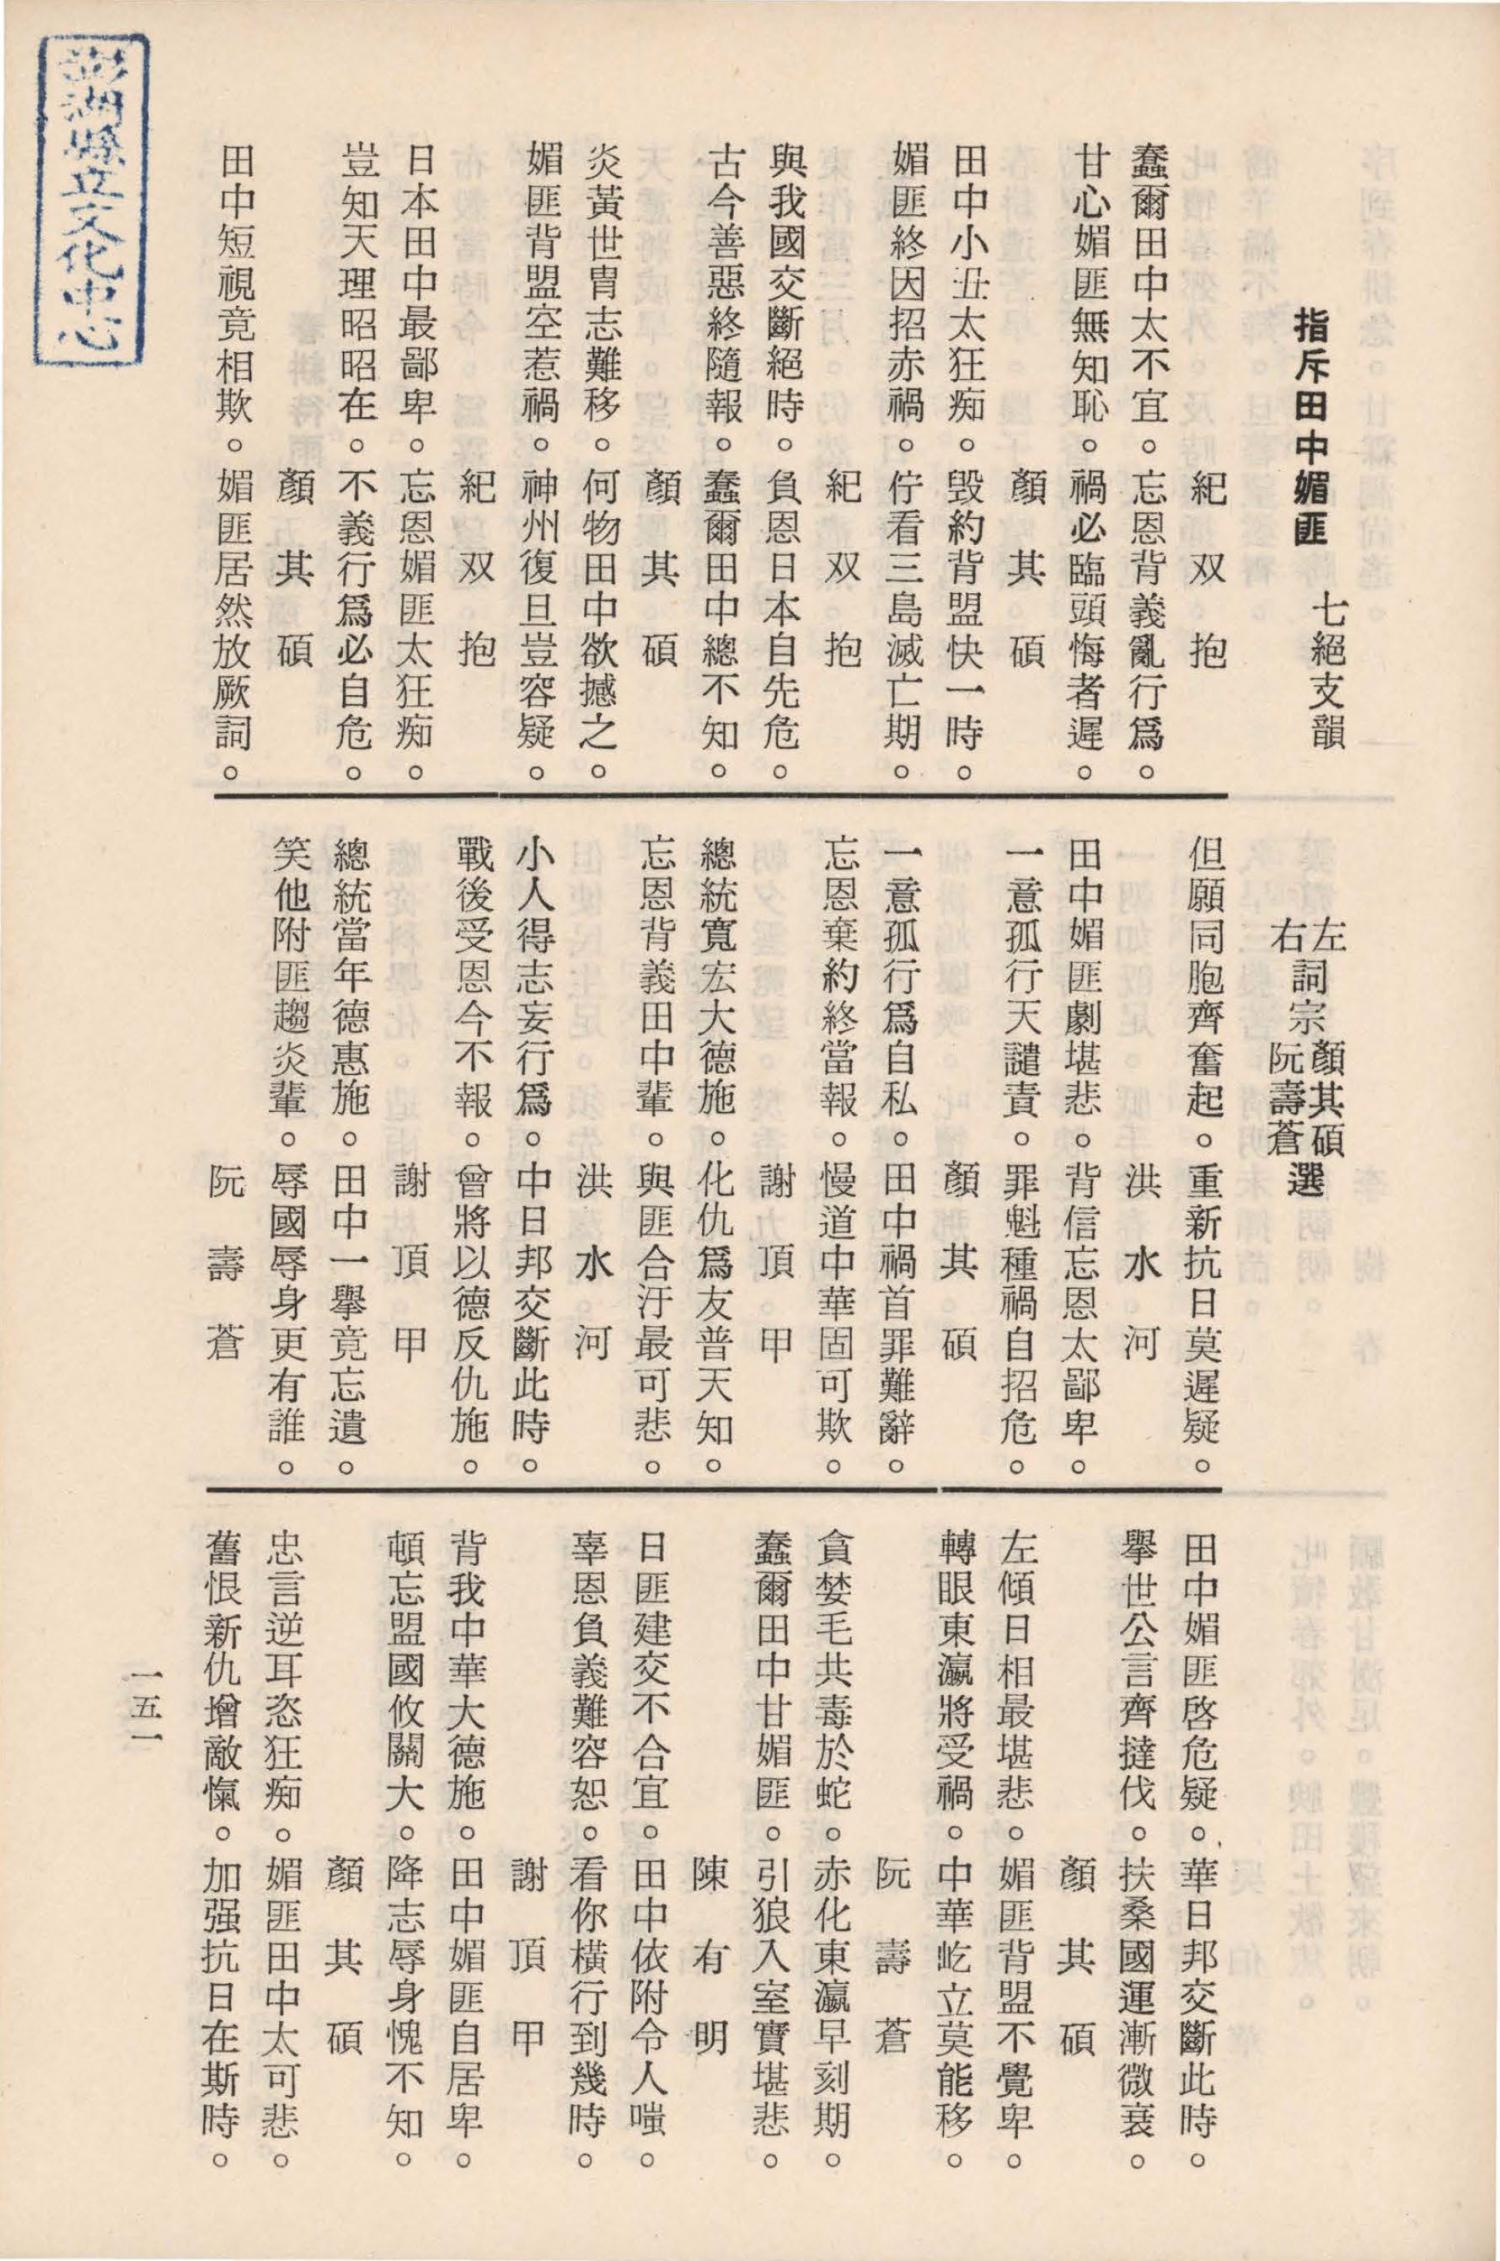 澎湖縣立文化中心
指斥田中媚匪　七絕支韻
左詞宗顏其碩選
右詞宗阮壽蒼選
紀双抱
蠢爾田中太不宜。忘恩背義亂行爲。
甘心媚匪無知恥。禍必臨頭悔者遲。
顏其碩
田中小丑太狂痴。毀約背盟快一時。
媚匪終因招赤禍。佇看三島滅亡期。
紀双抱
與我國交斷絕時。負恩日本自先危。
古今善惡終隨報。蠢爾田中總不知。
顏其碩
炎黃世冑志難移。何物田中欲撼之。
媚匪背盟空惹禍。神州復旦豈容疑。
紀双抱
日本田中最鄙卑。忘恩媚匪太狂痴。
豈知天理昭昭在。不義行爲必自危。
顏其碩
田中短視竟相欺。媚匪居然放厥詞。
但願同胞齊奮起。重新抗日莫遲疑。
洪水河
田中媚匪劇堪悲。背信忘恩太鄙卑。
一意孤行天譴責。罪魁種禍自招危。
顏其碩
一意孤行爲自私。田中禍首罪難辭。
忘恩棄約終當報。慢道中華固可欺。
謝頂甲
總統寬宏大德施。化仇爲友普天知。
忘恩背義田中輩。與匪合汙最可悲。
洪水河
小人得志妄行爲。中日邦交斷此時。
戰後受恩今不報。曾將以德反仇施。
謝頂甲
總統當年德惠施。田中一擧竟忘遺。
笑他附匪趨炎輩。辱國辱身更有誰。
阮壽蒼
田中媚匪啓危疑。華日邦交斷此時。
擧世公言齊撻伐。扶桑國運漸微衰。
顏其碩
左傾日相最堪悲。媚匪背盟不覺卑。
轉眼東瀛將受禍。中華屹立莫能移。
阮壽蒼
貪婪毛共毒於蛇。赤化東瀛早刻期。
蠢爾田中甘媚匪。引狼入室實堪悲。
陳有明
日匪建交不合宜。田中依附令人嗤。
辜恩負義難容恕。看你橫行到幾時。
謝頂甲
背我中華大德施。田中媚匪自居卑。
頓忘盟國攸關大。降志辱身愧不知。
顏其碩
忠言逆耳恣狂痴。媚匪田中太可悲。
舊恨新仇增敵愾。加强抗日在斯時。
一五一